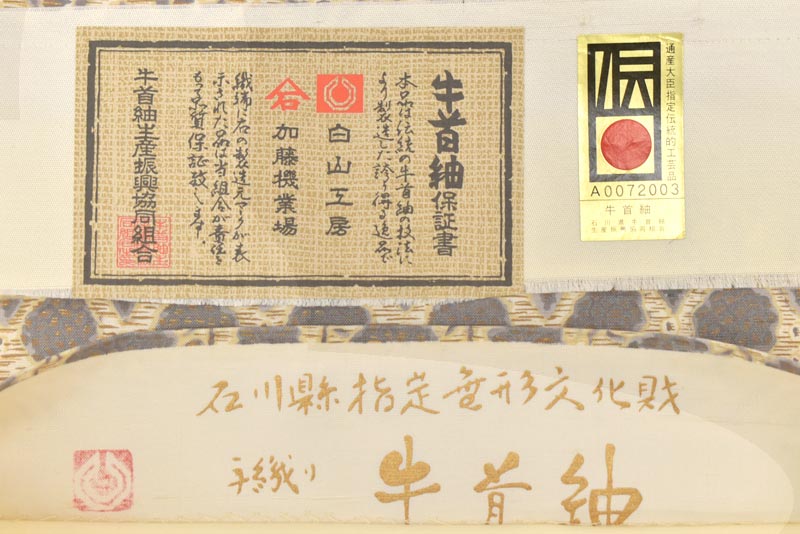 牛首紬保証書
本品は伝統の牛首紬の技法に
より製造した誇り得る逸品で
白山工房
加藤機業場
織編し右の製造元マークが表
示された品は当組合が責任を
もって品質保証致します。
牛首紬生産振興協同組合
伝
通産大臣指定伝統的工芸品
A0072003
牛首紬
石川県牛首紬
生産振興協同組合
石川縣指定無形文化財
手織り
牛首紬